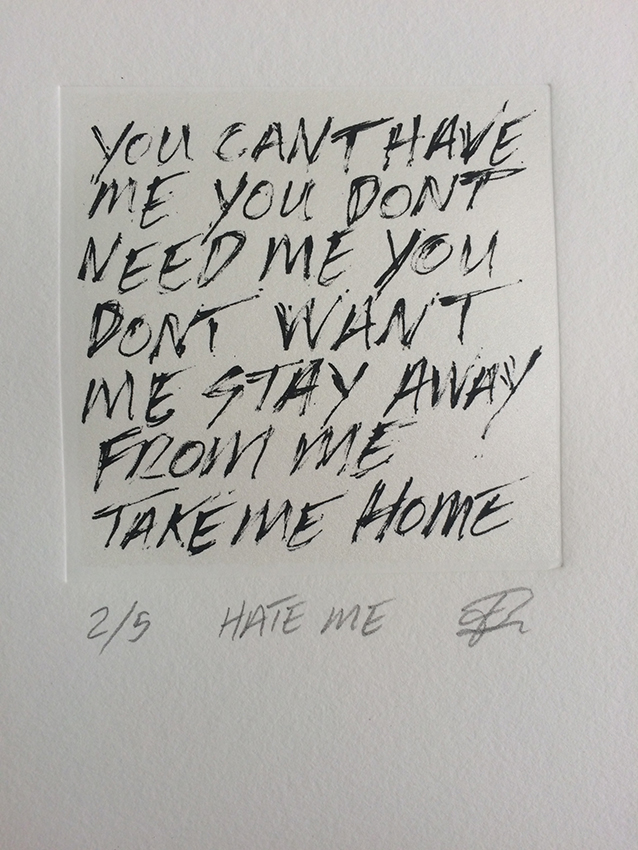 YOU CANT HAVE
ME YOU DONT
NEED ME YOU
DONT WANT
ME STAY AWAY
FROM ME
TAKE ME HOME
2/5 HATE ME